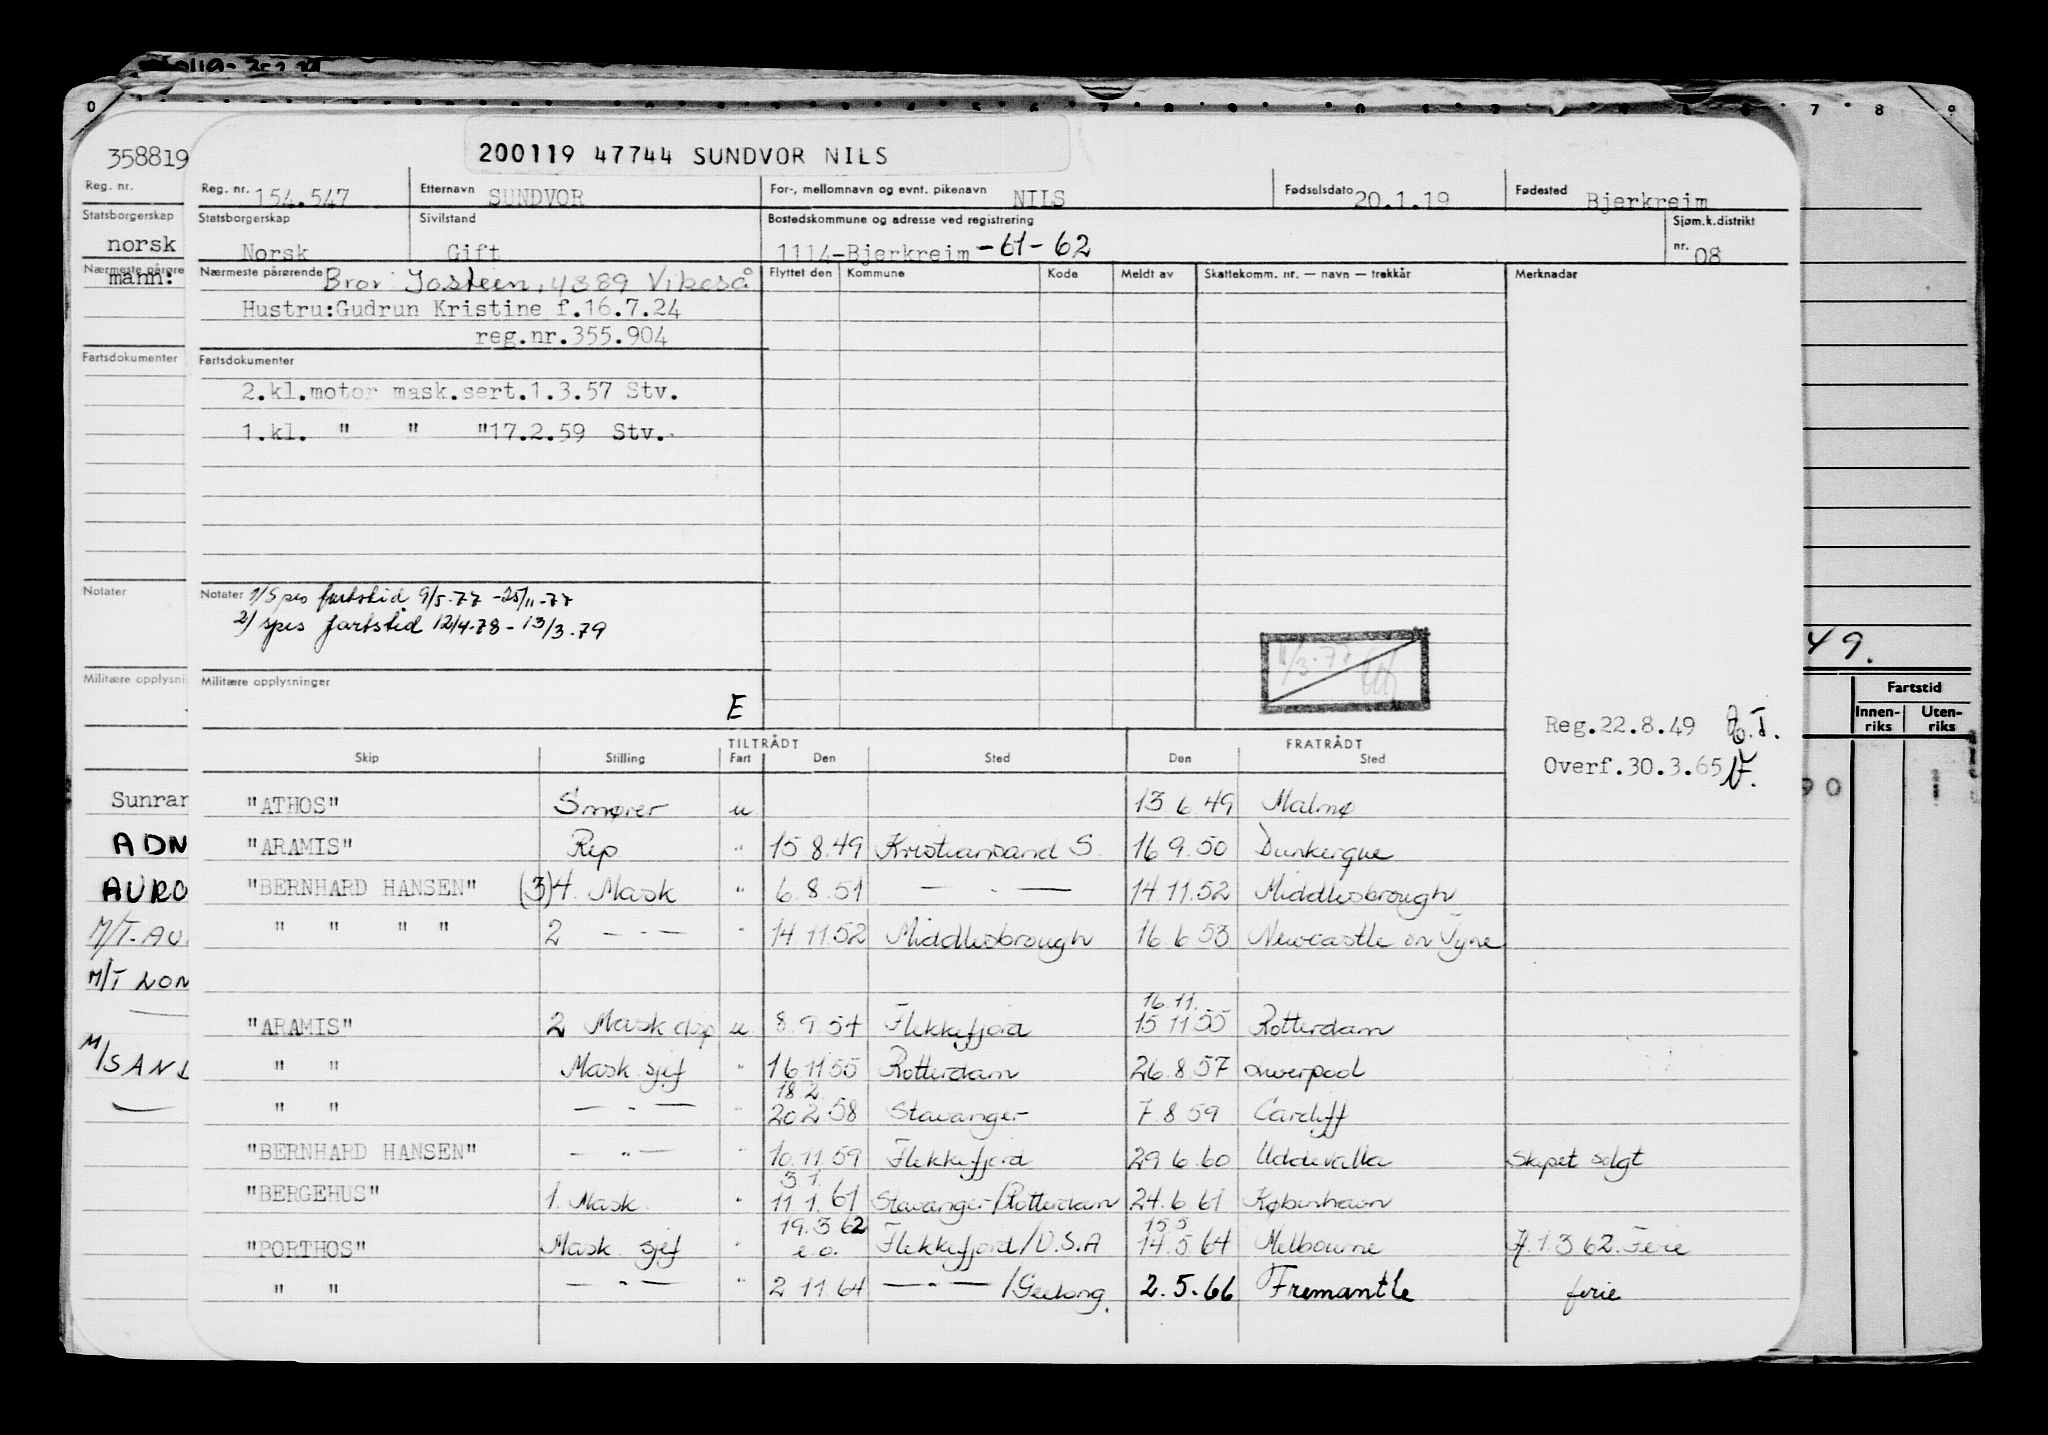 0 7 8 9
358819
200119 47744 SUNDVOR NILS
Reg. nr. Reg. nr. 154.547 Etternavn SUNDVOR For-, mellomnavn og evnt. pikenavn NILS Fødselsdato 20.1.19 Fødested Bjerkreim
Statsborgerskap Statsborgerskap Sivilstand Bostedskommune og adresse ved registrering Sjøm.k.distrikt
norsk Norsk Gift 1114-Bjerkreim -61-62 nr. 08
Nærmeste pårøre Nærmeste pårørende Bror Jostein, 4389 Vikeså Flyttet den Kommune Kode Meldt av Skattekomm. nr. — navn — trekkår Merknader
mann:
Hustru:Gudrun Kristine f.16.7.24
reg.nr.355.904
Fartsdokumenter Fartsdokumenter
2.kl.motor mask.sert.1.3.57 Stv.
1.kl. " " "17.2.59 Stv.
Notater Notater 1/ Spes fartstid 9/5-77 - 25/11-77
2/ spes fartstid 12/4-78 - 13/3-79
49.
Militære opplysni Militære opplysninger
Fartstid
E
Innen- riks Uten- riks
Reg.22.8.49
Overf.30.3.65
TILTRÅDT FRATRÅDT
Skip Stilling Fart Den Sted Den Sted
Sunrar "ATHOS" Smører u 13 6.49 Malmø
90
ADN "ARAMIS" Rep " 15 8.49 Kristiansand S. 16 9.50 Dunkerque
AURO "BERNHARD HANSEN" (3)4. Mask " 6.8.51 — " — 14.11.52 Middlesbrough
M/T-AU " " " " 2 — " — " 14 11.52 Middlesbrough 16 6 53 Newcastle on Tyne
M/T LON
16.11.
"ARAMIS" 2 Mask disp u 8.9.54 Flekkefjord 15 11 55 Rotterdam
M/SAND " " Mask. sjef " 16 11 55 Rotterdam 26.8.57 Liverpool
18 2
" " — " — " 20 2 58 Stavanger 7.8 59 Cardiff
"BERNHARD HANSEN" — " — " 10.11 59 Flekkefjord 29 6.60 Uddevalla Skipet solgt
3 1.
"BERGEHUS" 1. Mask. " 11 1.61 Stavanger/Rotterdam 24.6 61 København
19.3 62 15 5
"PORTHOS" Mask. sjef " e.o. Flekkefjord/U.S.A 14.5 64 Melbourne 1 3 62. Ferie
" " — " — " 2 11 64 — " — /Geelong. 2.5.66 Fremantle ferie